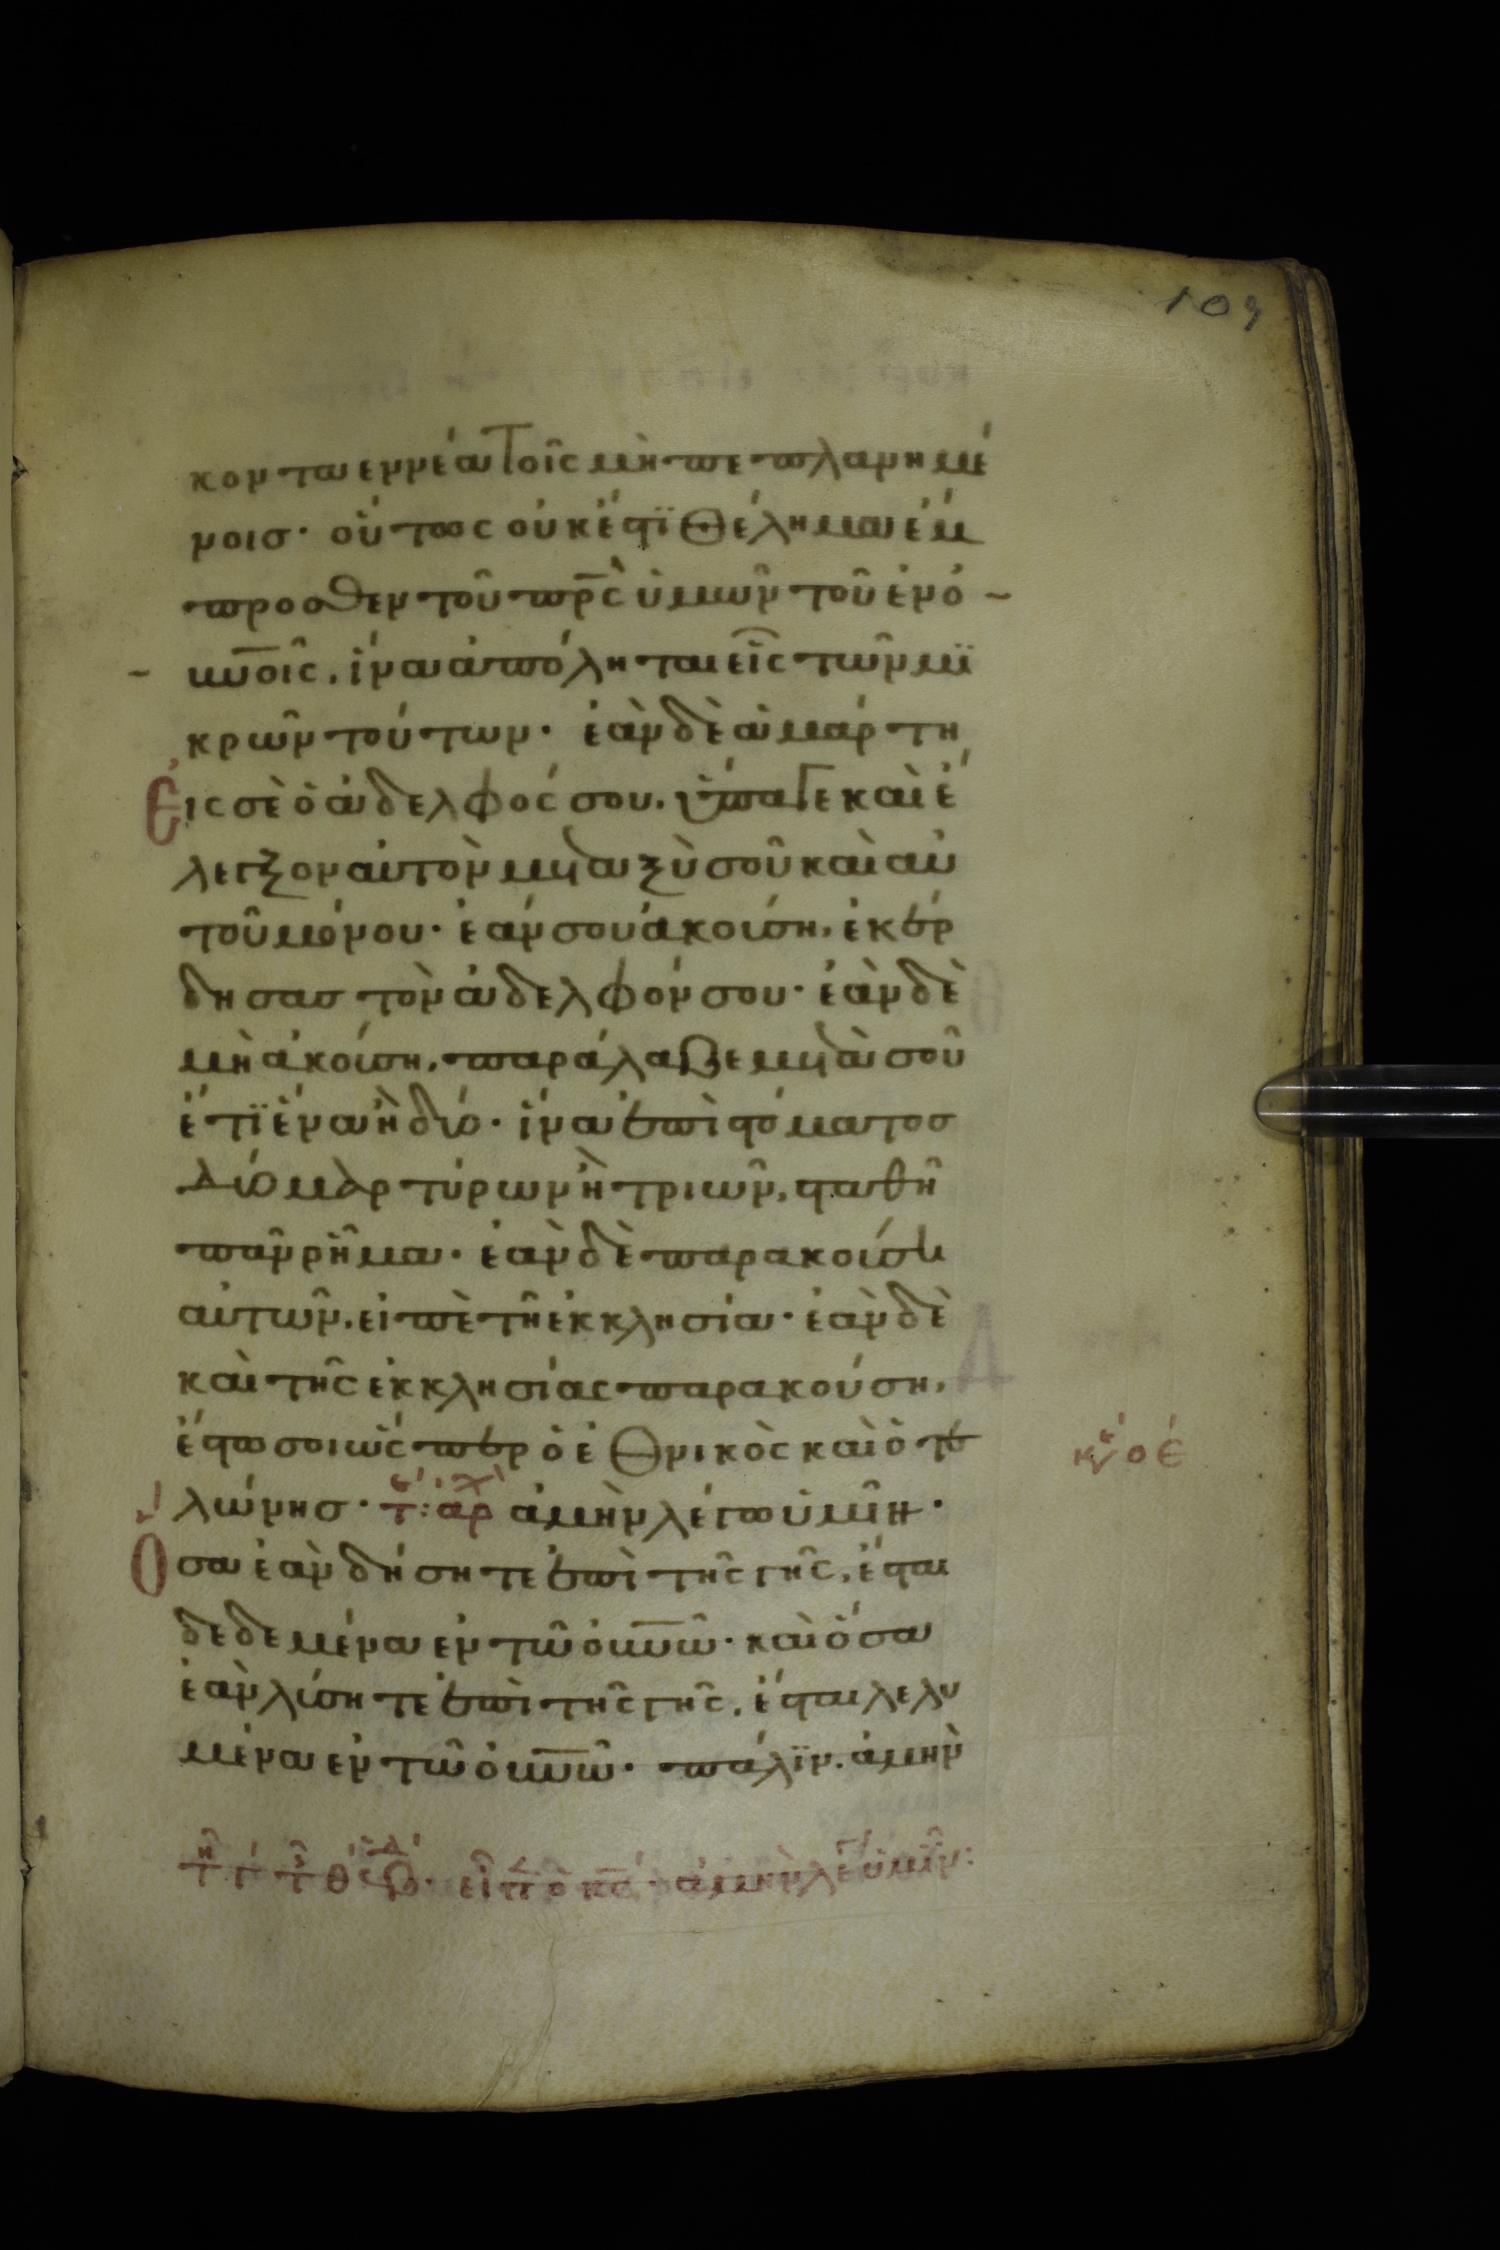 109
κονταεννέα τοῖς μὴ πεπλανημέ
νοισ· οὕτως οὐκ ἔστϊ θέλημα ἔμ
προσθεν τοῦ πρ̅ς ὑμῶν τοῦ ἐν ὀ
υν̅οῖς, ἵνα ἀπόληται εἷς τῶν μϊ
κρῶν τούτων· ἐὰν δὲ ἁμάρτη
Εἰς σὲ ὁ ἀδελφός σου, ὕπαγε καὶ ἔ
λεγξον αὐτὸν μεταξὺ σοῦ καὶ αὐ
τοῦ μόνου· ἐάν σου ἀκούση, ἐκέρ
δησασ τὸν ἀδελφόν σου· ἐὰν δὲ
μὴ ἀκούση, παράλαβε μετὰ σοῦ
ἔτϊ ἕνα ἢ δύο· ἵνα ἐπὶ στόματοσ
δύο μαρτύρων ἢ τριῶν, σταθῆ
πᾶν ῥῆμα· ἐὰν δὲ παρακούση
αὐτῶν, εἰπὲ τῆ ἐκκλησία· ἐὰν δὲ
καὶ τῆς ἐκκλησίας παρακούση,
ἔστω σοι ὥς περ ὁ ἐθνικὸς καὶ ὁ τε
λώνησ· ἀμὴν λέγω ὑμῖν·
Ὅσα ἐὰν δήσητε ἐπὶ τῆς γῆς, ἔσται
δεδεμένα ἐν τῶ ὀυν̅ῶ· καὶ ὅσα
ἐὰν λύσητε ἐπὶ τῆς γῆς, ἔσται λελυ
μένα ἐν τῶ ὀυν̅ῶ· πάλϊν ἀμὴν
εἶπ ὁ κ̅ς· ἀμὴν λέγ ὑμῖν: